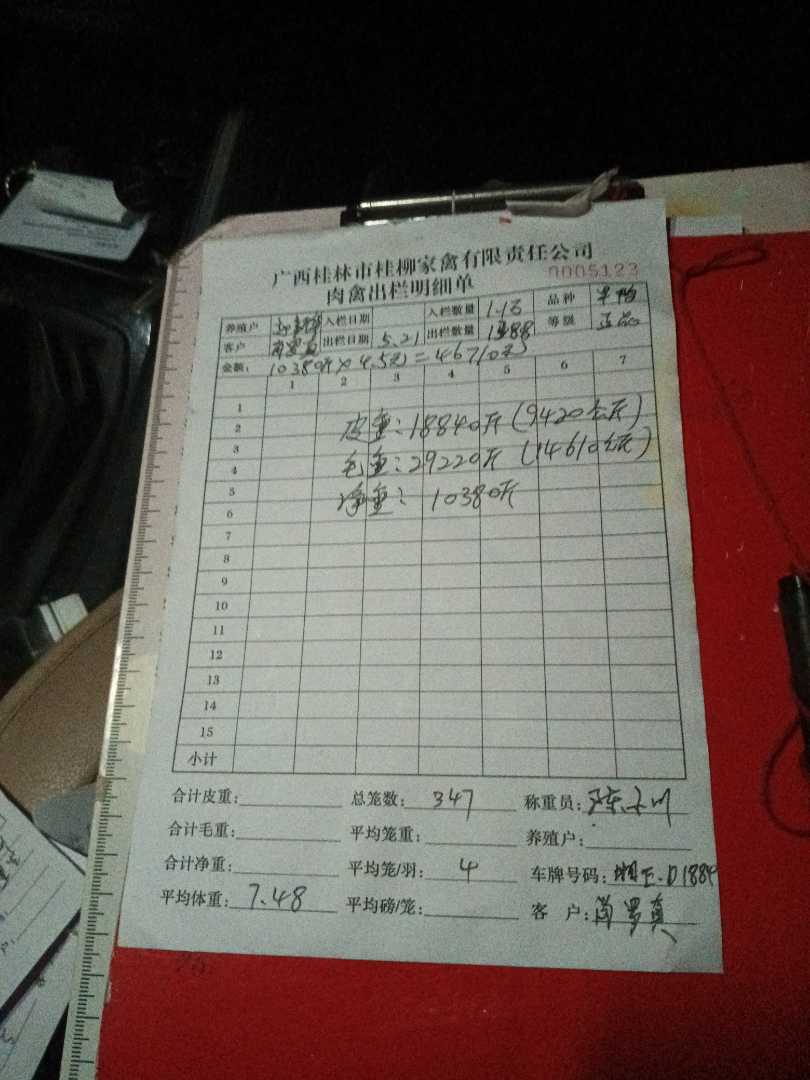 广西桂林市桂柳家禽有限责任公司
0005123
肉禽出栏明细单
养殖户 入栏日期 入栏数量 品种
客户 出栏日期 5.21 出栏数量 等级 正品
金额: 10380斤×4.5元=46710元
1 2 3 4 5 6 7
1
2 皮重:18840斤(9420公斤)
3
4 毛重:29220斤(14610公斤)
5
6 净重:10380斤
7
8
9
10
11
12
13
14
15
小计
合计皮重: 总笼数: 347 称重员:
合计毛重: 平均笼重: 养殖户:
合计净重: 平均笼/羽: 4 车牌号码:
平均体重: 7.48 平均磅/笼: 客 户: